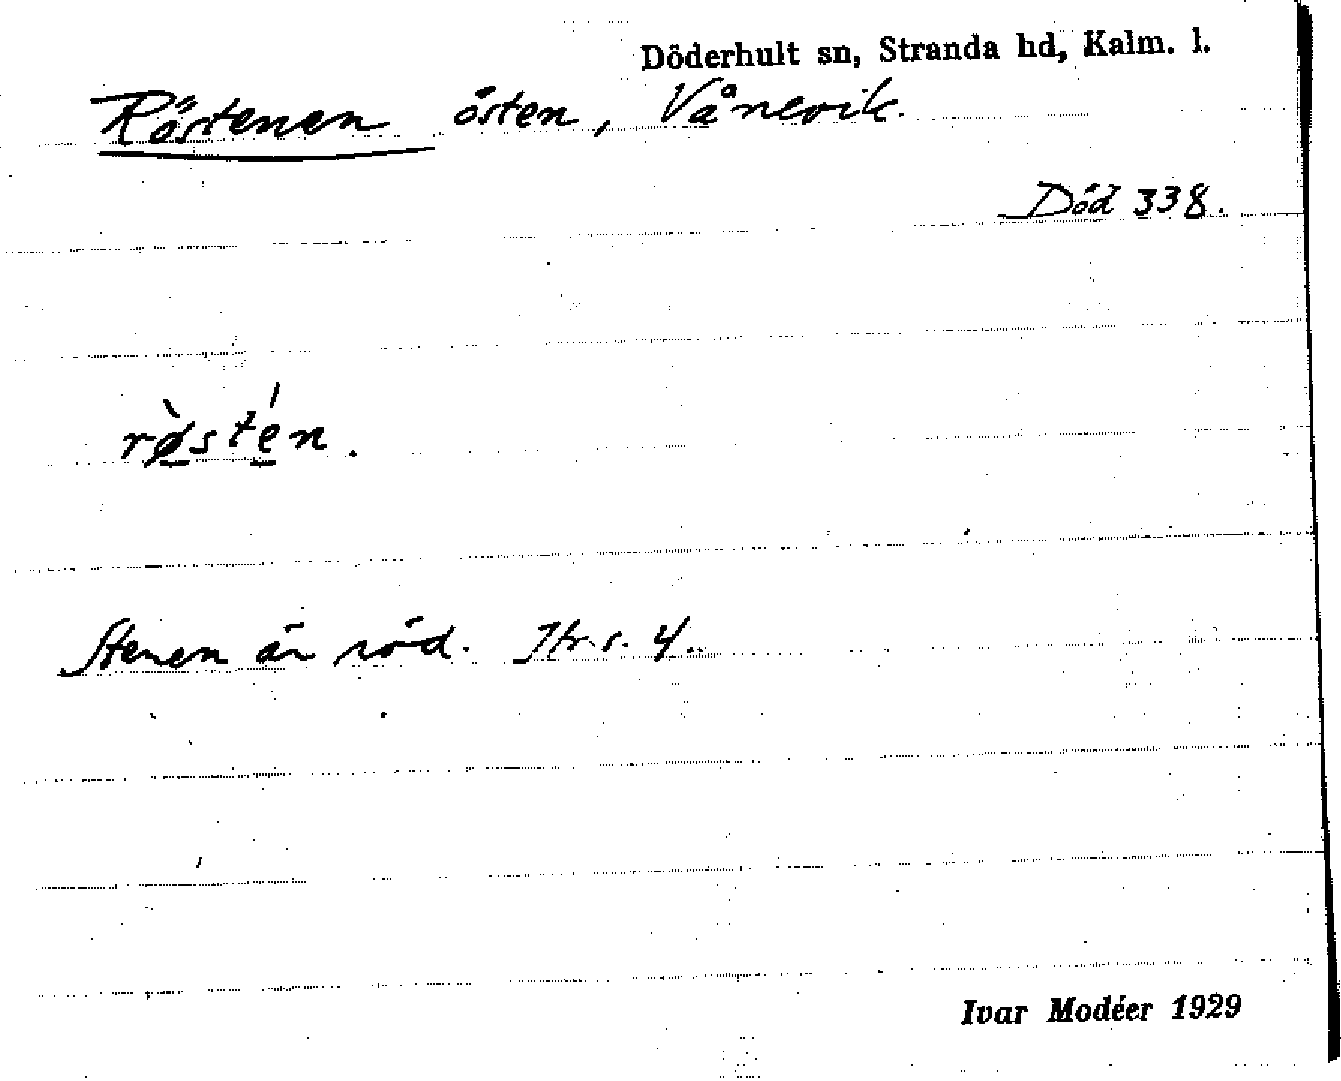 Döderhult sn, Stranda hd, Kalm. l.
Röstenen östen, Vånevik.
Död 338.
rø̀stén.
Stenen är röd. Jfr s. 4.
Ivar Modéer 1929